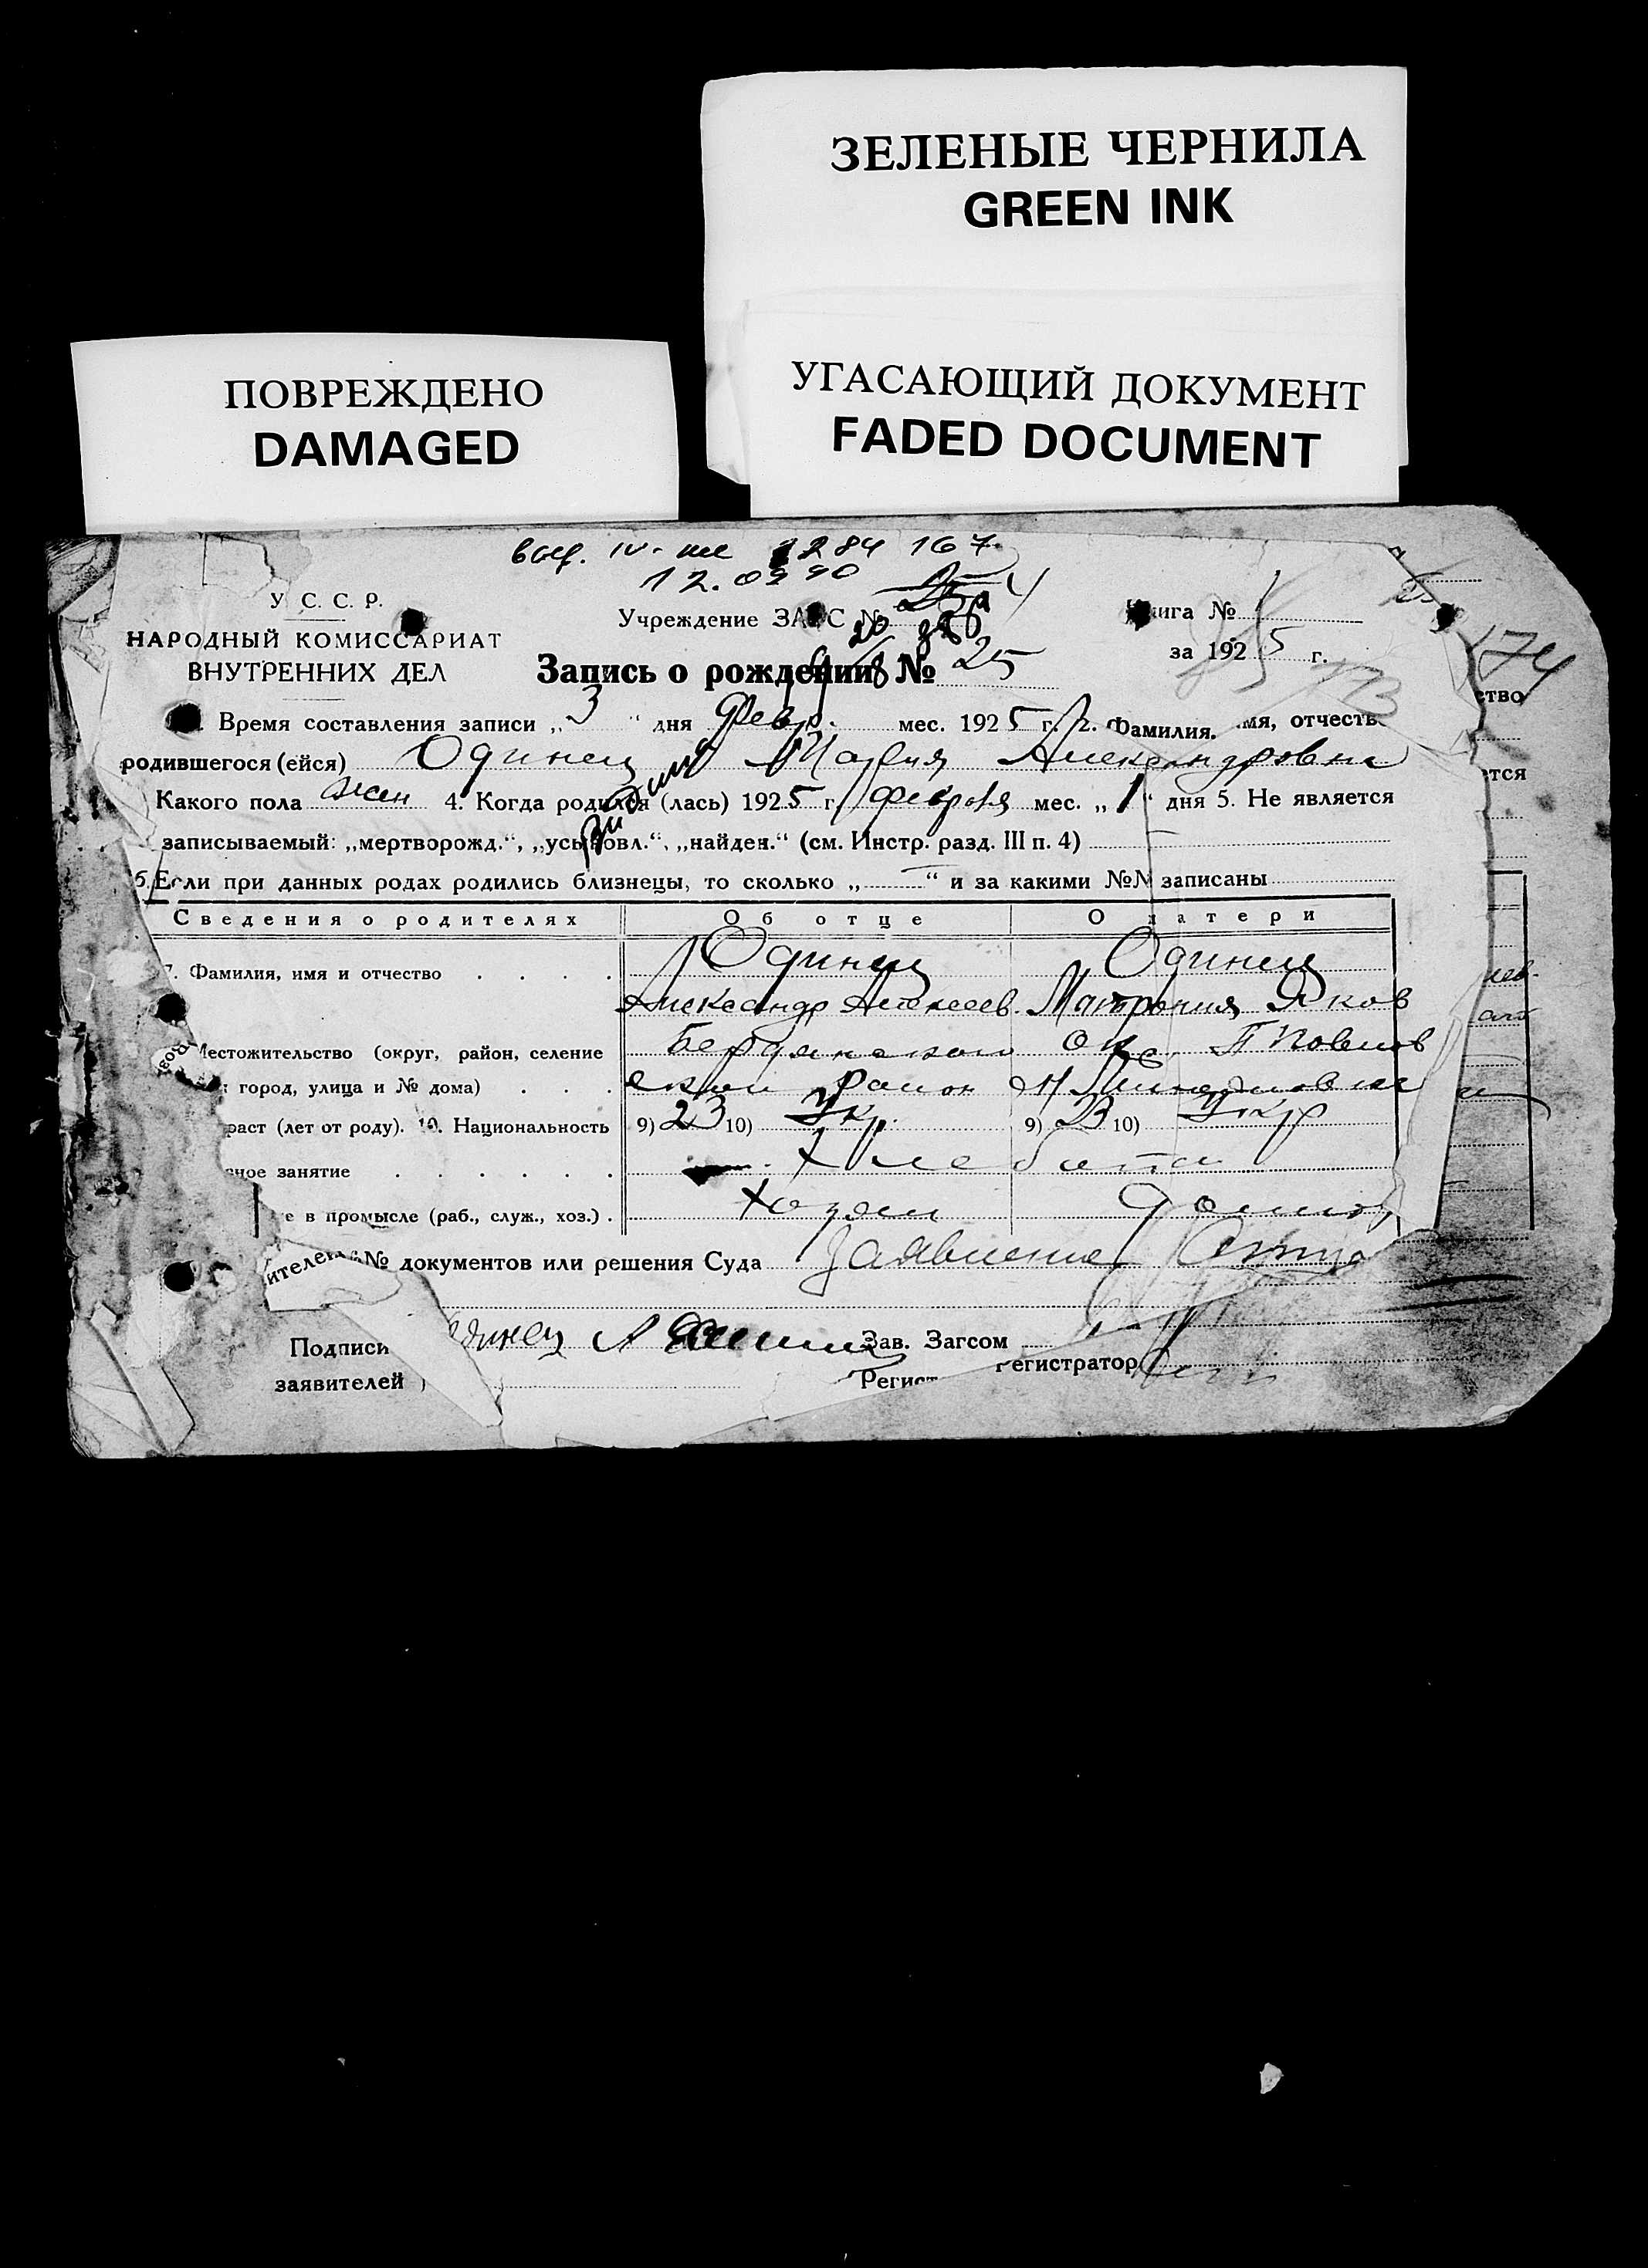 ЗЕЛЕНЫЕ ЧЕРНИЛА
GREEN INK
УГАСАЮЩИЙ ДОКУМЕНТ
FADED DOCUMENT
ПОВРЕЖДЕНО
DAMAGED
IV- 2284 167
12.09 90
У. С. С. Р.
НАРОДНЫЙ КОМИССАРИАТ
ВНУТРЕННИХ ДЕЛ
Учреждение ЗАГС №
Книга № 1
за 1925 г.
174
Запись о рождении № 25
Время составления записи „3" дня Февр. мес. 1925 г. 2. Фамилия, имя, отчеств
родившегося (ейся) Одинец Мария Александровна
Какого пола жен 4. Когда родился (лась) 1925 г. февраля мес. „1" дня 5. Не является
записываемый: „мертворожд.", „усыновл.", „найден." (см. Инстр. разд. III п. 4)
6. Если при данных родах родились близнецы, то сколько „—" и за какими №№ записаны
Сведения о родителях Об отце О матери
7. Фамилия, имя и отчество Одинец Одинец
Александр Алексеев. Матрония Яков
Местожительство (округ, район, селение Бердянского окр.
город, улица и № дома) район
раст (лет от роду). 10. Национальность 9) 23 10) Укр. 9) 23 10) Укр
ное занятие Хлебопа
е в промысле (раб., служ., хоз.) Хозяин
ителен № документов или решения Суда Заявление Отца
Подписи динец А
заявителей
Зав. Загсом
Регист
Регистратор
ство
ется